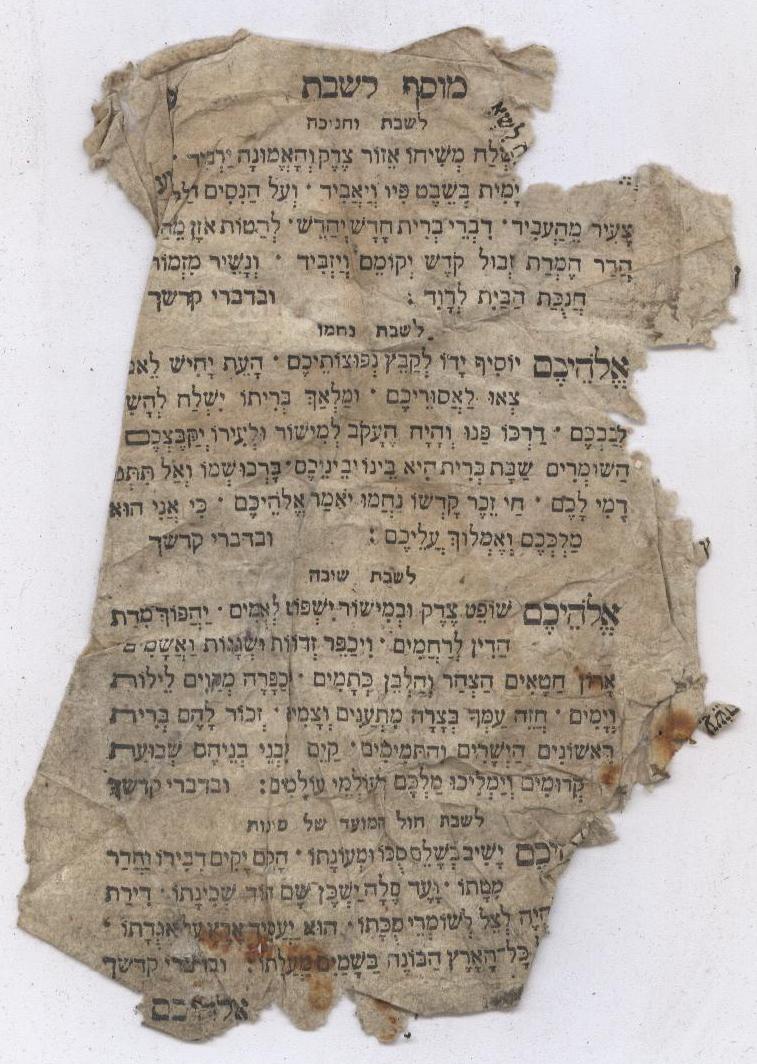 מוסף לשבת
לשבת וחנוכה
יִשְׁלַח מְשִׁיחוֹ אֵזוֹר צֶדֶק וְהָאֱמוּנָה
יָמִית בְּשֵׁבֶט פִּיו וְיַאֲבִיד · וְעַל הַנִּסִּים
צָעִיר מֵהַעֲבִיד · דִּבְרֵי בְרִית חָדָשׁ יְחַדֵּשׁ · לְהַטּוֹת אֹזֶן
הֲדַר חֶמְדַּת זְבוּל קֹדֶשׁ יְקוֹמֵם וְיַזְבִּיד · וְנָשִׁיר מִזְמוֹר
חֲנֻכַּת הַבַּיִת לְדָוִד : ובדברי קדשך
לשבת נחמו
אֱלֹהֵיכֶם יוֹסִיף יָדוֹ לְקַבֵּץ נְפוּצוֹתֵיכֶם · הָעֵת יָחִישׁ
צְאוּ לַאֲסוּרֵיכֶם · וּמַלְאַךְ בְּרִיתוֹ יִשְׁלַח
לְבַבְכֶם · דַּרְכּוֹ פַּנּוּ וְהָיָה הֶעָקֹב לְמִישׁוֹר וּלְעִירוֹ יְקַבֶּצְכֶם
הַשּׁוֹמְרִים שַׁבָּת בְּרִית הִיא בֵּינוֹ וּבֵינֵיכֶם · בָּרְכוּ שְׁמוֹ וְאַל
דֳמִי לָכֶם · חַי זֵכֶר קָדְשׁוֹ נַחֲמוּ יֹאמַר אֱלֹהֵיכֶם · כִּי אֲנִי הוּא
מַלְכְּכֶם וְאֶמְלוֹךְ עֲלֵיכֶם : ובדברי קדשך
לשבת שובה
אֱלֹהֵיכֶם שׁוֹפֵט צֶדֶק וּבְמִישׁוֹר יִשְׁפּוֹט לְאֻמִּים · יַהֲפוֹךְ מִדַּת
הַדִּין לְרַחֲמִים · וִיכַפֵּר זְדוֹנוֹת וּשְׁגָגוֹת וַאֲשָׁמִים
חֲטָאִים הַצְהַר וְהַלְבֵּן כְּתָמִים · כַּפָּרָה מְקַוִּים לֵילוֹת
וְיָמִים · חֲזֵה עַמְּךָ בְּצָרָה מִתְעַנִּים וְצָמִים · זְכוֹר לָהֶם בְּרִית
רִאשׁוֹנִים הַיְשָׁרִים וְהַתְּמִימִים · קַיֵּם לִבְנֵי בְנֵיהֶם שְׁבוּעַת
קְדוּמִים וְיַמְלִיכוּ מַלְכָּם לְעוֹלְמֵי עוֹלָמִים: ובדברי קדשך
לשבת חול המועד של סוכות
יָשִׁיב בְּשָׁלֵם סֻכּוֹ וּמְעוֹנָתוֹ · הָקֵם יָקִים דְּבִירוֹ וַחֲדַר
מִטָּתוֹ · וָעֶד סֶלָה יַשְׁכֵּן שָׁם הוֹד שְׁכִינָתוֹ · דִּירַת
לְצֵל לְשׁוֹמְרֵי סֻכָּתוֹ · הוּא יַעֲמִיד אֶרֶץ עַל אֲגֻדָּתוֹ ·
כָּל־הָאָרֶץ הַבּוֹנֶה בַשָּׁמַיִם מַעֲלָתוֹ : ובדברי קדשך
אלהיכם